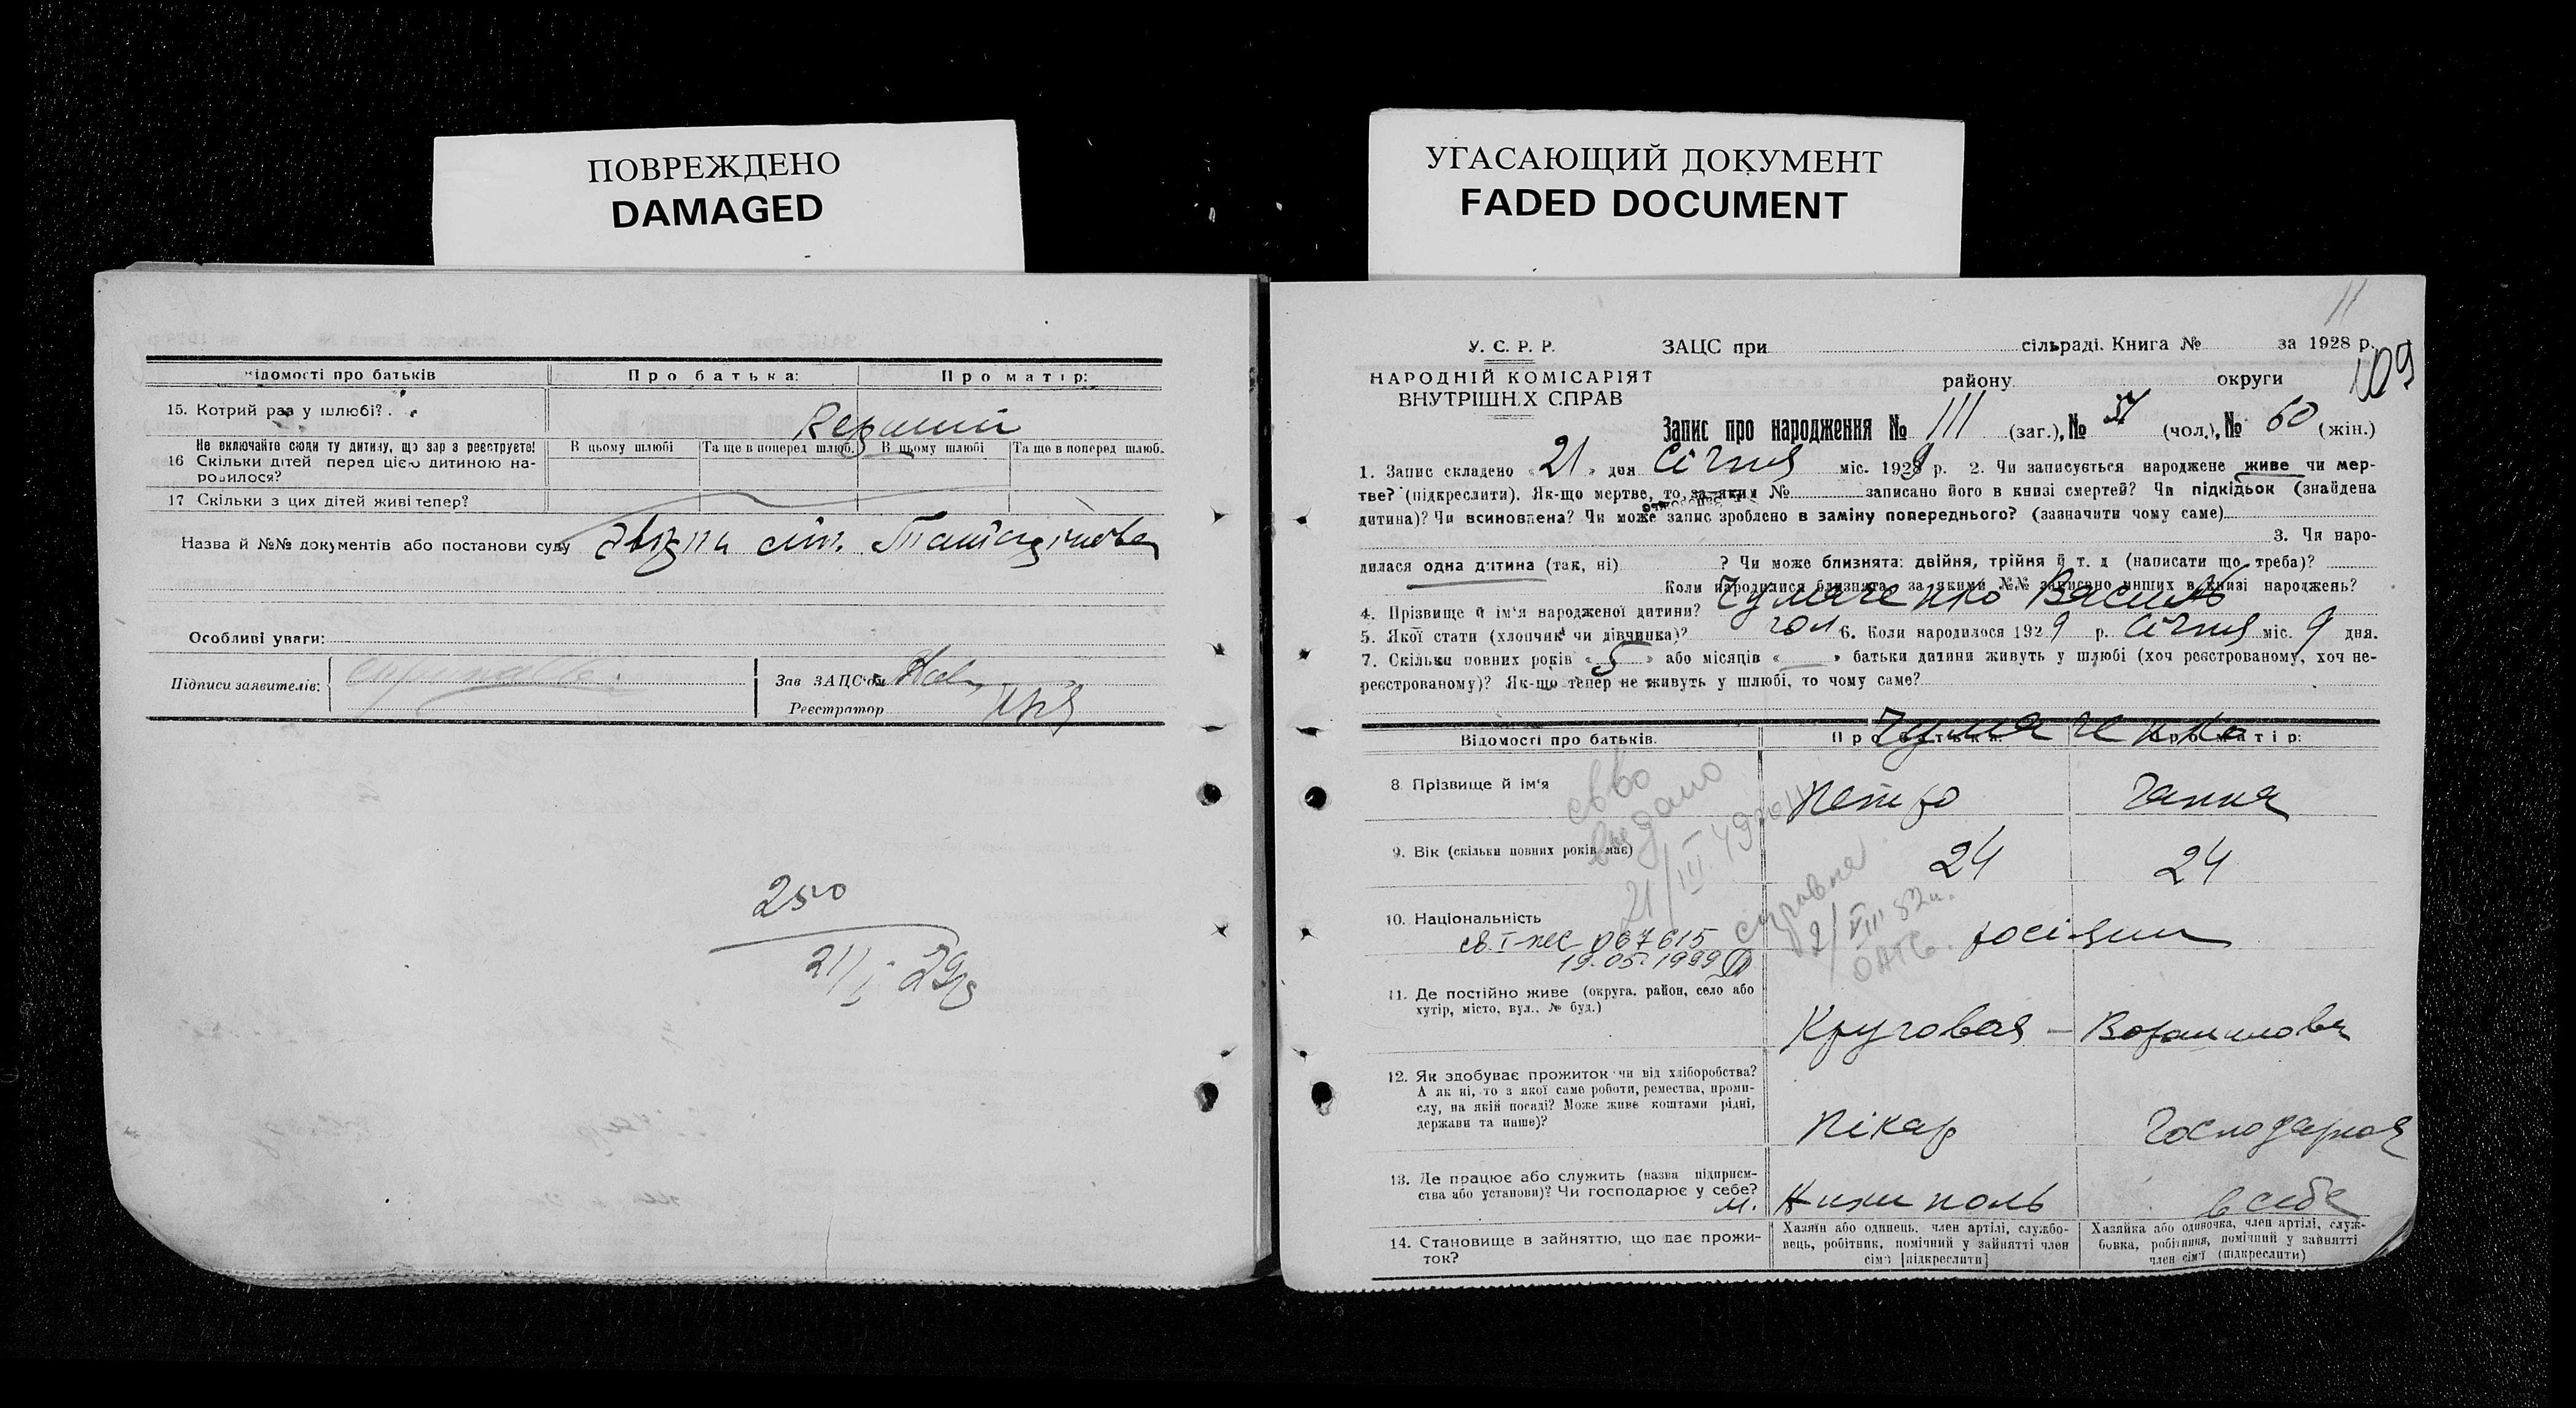 ПОВРЕЖДЕНО
DAMAGED
УГАСАЮЩИЙ ДОКУМЕНТ
FADED DOCUMENT
відомості про батьків
Про батька:
Про матір:
15. Котрий раз у шлюбі?
Первший
Не включайте сюди ту дитину, що зараз реєструєте!
16 Скільки дітей перед цією дитиною на-
родилося?
В цьому шлюбі
Та ще в поперед шлюб.
В цьому шлюбі
Та ще в поперед шлюб.
17 Скільки з цих дітей живі тепер?
Назва й №№ документів або постанови суду
Особливі уваги:
Підписи заявителів:
Зав ЗАЦС'ом
Реєстратор
250
21/I 29
11
У. С. Р. Р.
ЗАЦС при сільраді. Книга № за 1928 р.
109
НАРОДНІЙ КОМІСАРІЯТ
ВНУТРІШНІХ СПРАВ
району округи
Запис про народження № 111 (заг.), № 51 (чол.), № 60 (жін.)
1. Запис складено „21„ дня Січня міс. 1929 р. 2. Чи записується народжене живе чи мер-
тве? (підкреслити). Як-що мертве, то за яким № записано його в книзі смертей? Чи підкідьок (знайдена
дитина)? Чи всиновлена? Чи може запис зроблено в заміну попереднього? (зазначити чому саме)
3. Чи наро-
дилася одна дитина (так, ні) ? Чи може близнята: двійня, трійня й т. д (написати що треба)?
Коли народилися близнята, за якими №№ записано инших в книзі народжень?
4. Прізвище й ім'я народженої дитини? Чумаченко Василь
5. Якої стати (хлопчик чи дівчинка)? чол 6. Коли народилося 1929 р. Січня міс. 9 дня.
7. Скільки повних років „5„ або місяців „—„ батьки дитини живуть у шлюбі (хоч реєстрованому, хоч не-
реєстрованому)? Як-що тепер не живуть у шлюбі, то чому саме?
Відомості про батьків.
Про батька:
Про матір:
Чумаченко
8. Прізвище й ім'я
Петро
Ганна
св-во
видано
21/III 49
9. Вік (скільки повних років має)
24
24
справка
2/VIII 52
10. Національність
росіяни
св. I-пес 067615
19.05.1999
11. Де постійно живе (округа, район, село або
хутір, місто, вул., № буд.)
Круговая – Ворошилова
12. Як здобуває прожиток чи від хліборобства?
А як ні, то з якої саме роботи, ремества, проми-
слу, на якій посаді? Може живе коштами рідні,
держави та инше)?
Пікар
Господарная
13. Де працює або служить (назва підприєм-
ства або установи)? Чи господарює у себе?
в себе
14. Становище в зайняттю, що дає прожи-
ток?
Хазяїн або одинець, член артілі, службо-
вець, робітник, помічний у зайнятті член
сім'ї [підкреслити]
Хазяйка або одиночка, член артілі, служ-
бовка, робітниця, помічний у зайнятті
член сім'ї (підкреслити)